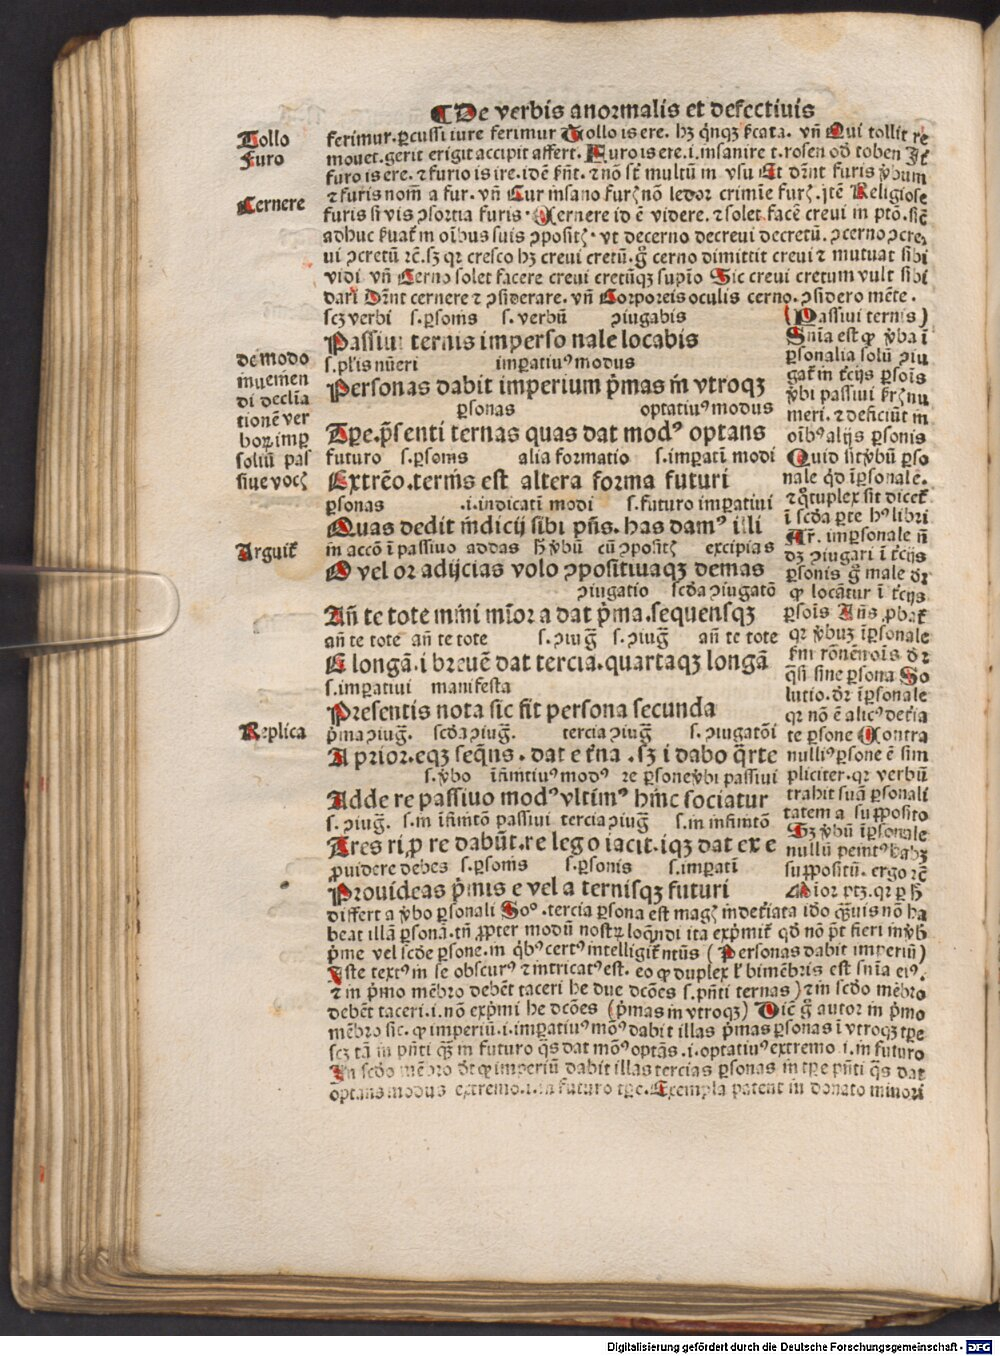 ¶De verbis anormalis et defectiuis
Tollo
Furo
Cernere
ferimur. ꝑcussi iure ferimur Tollo is ere. hꝫ qͥnqꝫ ſcata. vñ Qui tollit re
mouet. gerit erigit accipit affert. Furo is ere .i. insanire t. rosen oď toben Jtē
furo is ere. ⁊ furio is ire. idē ſñt. ⁊ nō st̄ multū in vsu Et dr̄nt furis ṽbum
⁊ furis nom̄ a fur. vñ Cur insano furꝭ nō ledor crimīe furꝭ. jtē Religiose
furis si vis ꝯsortia furis. Cernere id ē videre. ⁊ solet facē creui in ptō. sic̄
adhuc ſuat̄ in oībus suis ꝯpositꝭ. vt decerno decreui decretū. ꝯcerno ꝯcre,
ui ꝯcretū rc̄. sꝫ qr cresco hꝫ creui cretū. gͦ cerno dimittit creui ⁊ mutuat sibi
vidi vñ Cerno solet facere creui cretūqꝫ supīo Sic creui cretum vult sibi
dari Dr̄nt cernere ⁊ ꝯsiderare. vñ Corporeis oculis cerno. ꝯsidero mēte.
scꝫ verbi s. ꝑsonis s. verbū ꝯiugabis
Passiui ternis imperso nale locabis
s. pl̄is nūeri imꝑatiuꝰ modus
Personas dabit imperium pͥmas in vtroqꝫ
ꝑsonas optatiuꝰ modus
Tꝑe. pn̄senti ternas quas dat modꝰ optans
futuro s. ꝑsonis alia formatio s. imꝑatī modi
Extrēo. ternis est altera forma futuri
ꝑsonas .i. indicatī modi s. futuro imꝑatiui
Quas dedit indicij sibi pn̄s. has damꝰ illi
in accō ī passiuo addas h̄ ṽbū cū ꝯpositꝭ excipias
O vel or adijcias volo ꝯpositiuaqꝫ demas
ꝯiugatio scďa ꝯiugatō
Añ te tote mini minor a dat pͥma. sequensqꝫ
añ te tote añ te tote s. ꝯiug̃ s. ꝯiug̃ añ te tote
E longā. i breuē dat tercia. quartaqꝫ longā
s. imꝑatiui manifesta
Presentis nota sic fit persona secunda
pͥma ꝯiug̃. scďa ꝯiug̃. tercia ꝯiug̃ s. ꝯiugatōi
A prior. eqꝫ seqñs. dat e tͣna. sꝫ i dabo qͣrte
s. ṽbo infinitiuꝰ modꝰ re ꝑsone ṽbi passiui
Adde re passiuo modꝰ vltimꝰ hinc sociatur
s. ꝯiug̃. s. in infinitō passiui tercia ꝯiug̃ s. in infinitō
Tres ri ꝓ re dabūt. re lego iacit. iqꝫ dat ex e
ꝓuidere debes s. ꝑsonis s. ꝑsonis s. imꝑatī
Prouideas pͥmis e vel a ternisqꝫ futuri
de modo
inuenien
di declīa
tionē ver
boꝝ imꝑ
soliū pas
siue vocꝭ
Arguit̄
Replica
(Passiui ternis)
Sn̄ia est ꝙ ṽba ī
ꝑsonalia solū ꝯiu
gat̄ in tc̄ijs ꝑsoīs
ṽbi passiui ſrꝭ nu
meri. ⁊ deficiūt in
oībꝰ alijs ꝑsonis
Quid sit ṽbū ꝑso
nale qͥd īꝑsonale.
⁊ qͣtuplex sit dicet̄
ī scďa ꝑte hꝰ libri
Ar̄. imꝑsonale ñ
dꝫ ꝯiugari ī tc̄ijs
ꝑsonis gͦ male dr̄
ꝙ locātur ī tc̄ijs
ꝑsoīs Añs ꝓbat̄
qr ṽbuꝫ īꝑsonale
ſm rōnē noīs dr̄
qͣsi sine ꝑsona So
lutio. dr̄ īꝑsonale
qr nō ē alicꝰ deťīa
te ꝑsone Contra
nulliꝰ ꝑsone ē sim
pliciter. qr verbū
trahit suā ꝑsonali
tatem a supposito
Sꝫ ṽbū īꝑsonale
nullū penitꝰ habꝫ
suppositū. ergo rc̄
Maior ptꝫ. qr ꝑ h̄
differt a ṽbo ꝑsonali Soº. tercia ꝑsona est magꝭ indet̄iata idō qͣuis nō ha
beat illā ꝑsonā. tn̄ ꝓpter modū nostꝝ loqn̄di ita expͥmit̄ qď nō pōt fieri in ṽb
pͥme vel scďe ꝑsone. in qͥbꝰ certꝰ intelligit̄ ntūs (Personas dabit imperiū)
Jste textꝰ in se obscurꝰ ⁊ intricatꝰ est. eo ꝙ duplex ł bimēbris est sn̄ia eiꝰ.
⁊ in pͥmo mēbro debēt taceri he due dcōes s. pn̄ti ternas) ⁊ in scďo mēbro
debēt taceri .i. nō expͥmi he dcōes (pͥmas in vtroqꝫ) Dic̄ gͦ autor in pͥmo
mēbro sic. ꝙ imperiū .i. imꝑatiuꝰ moꝰ dabit illas pͥmas ꝑsonas ī vtroqꝫ tꝑe
scꝫ tā in pn̄ti qͣ in futuro qͣs dat mōꝰ optās .i. optatiuꝰ extremo .i. in futuro
Jn scďo mēbro dr̄ ꝙ imperiū dabit illas tercias ꝑsonas in tꝑe pn̄ti qͣs dat
optans modus extremo .i. in futuro tꝑe. Exempla patent in donato minori
Digitalisierung gefördert durch die Deutsche Forschungsgemeinschaft - DFG